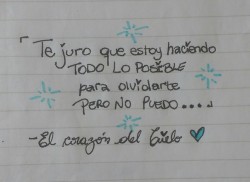 「Te juro que estoy haciendo
TODO LO POSIBLE
para olvidarte
PERO NO PUEDO....」
-El corazón del